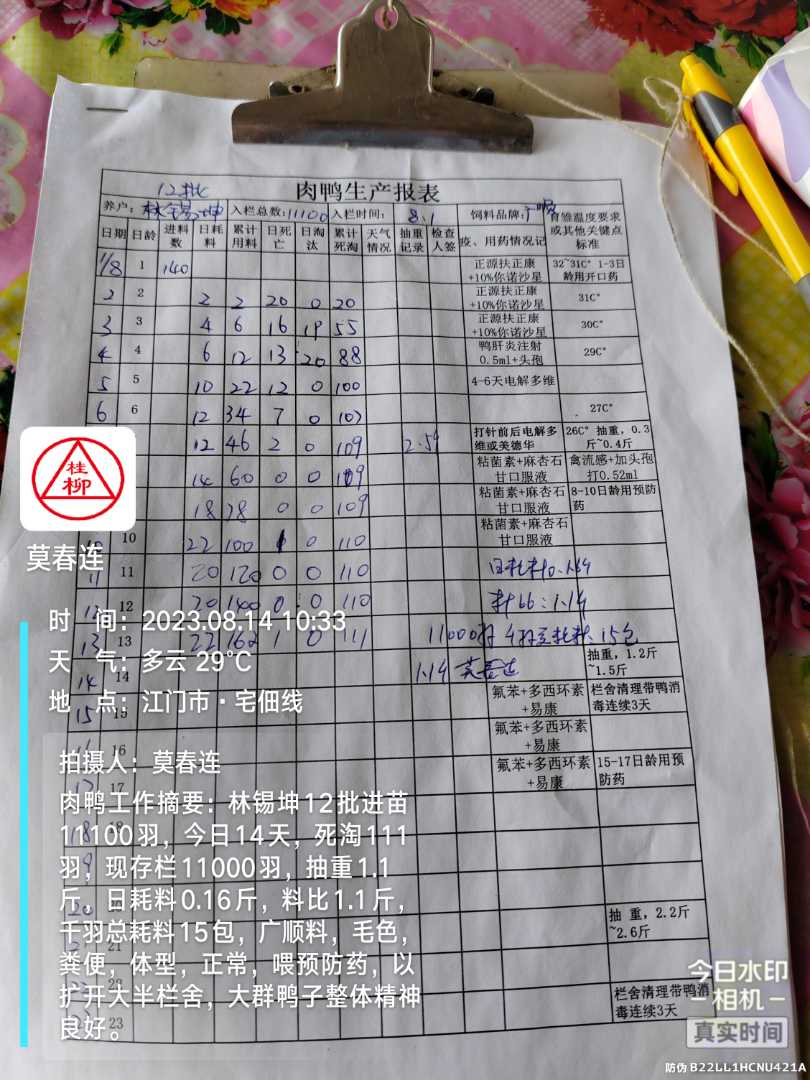 12批
肉鸭生产报表
养户: 林锡坤 入栏总数: 11100 入栏时间: 8.1 饲料品牌: 广顺 育雏温度要求或其他关键点标准
日期 日龄 进料数 日耗料 累计用料 日死亡 日淘汰 累计死淘 天气情况 抽重记录 检查人签 疫、用药情况记
1/8 1 140 正源扶正康+10%你诺沙星 32~31C° 1-3日龄用开口药
2 2 2 2 20 0 20 正源扶正康+10%你诺沙星 31C°
3 3 4 6 16 19 55 正源扶正康+10%你诺沙星 30C°
4 4 6 12 13 20 88 鸭肝炎注射0.5ml+头孢 29C°
5 5 10 22 12 0 100 4-6天电解多维
6 6 12 34 7 0 107 27C°
12 46 2 0 109 打针前后电解多维或美德华 26C° 抽重,0.3斤~0.4斤
14 60 0 0 109 粘菌素+麻杏石甘口服液 禽流感+加头孢打0.52ml
18 78 0 0 109 粘菌素+麻杏石甘口服液 8-10日龄用预防药
10 22 100 1 0 110 粘菌素+麻杏石甘口服液
11 11 20 120 0 0 110
12 12 20 140 0 0 110 料比:1.14
13 13 22 162 1 0 111 11000羽 15包
14 14 1.14 莫春连 抽重,1.2斤~1.5斤
15 15 氟苯+多西环素+易康 栏舍清理带鸭消毒连续3天
16 氟苯+多西环素+易康
17 氟苯+多西环素+易康 15-17日龄用预防药
18
20 抽 重,2.2斤~2.6斤
21
22
23 栏舍清理带鸭消毒连续3天
桂柳
莫春连
时 间: 2023.08.14 10:33
天 气: 多云 29℃
地 点: 江门市·宅佃线
拍摄人: 莫春连
肉鸭工作摘要: 林锡坤12批进苗
11100羽,今日14天,死淘111
羽,现存栏11000羽,抽重1.1
斤,日耗料0.16斤,料比1.1斤,
千羽总耗料15包,广顺料,毛色,
粪便,体型,正常,喂预防药,以
扩开大半栏舍,大群鸭子整体精神
良好。
今日水印
相机
真实时间
防伪 B22LL1HCNU421A